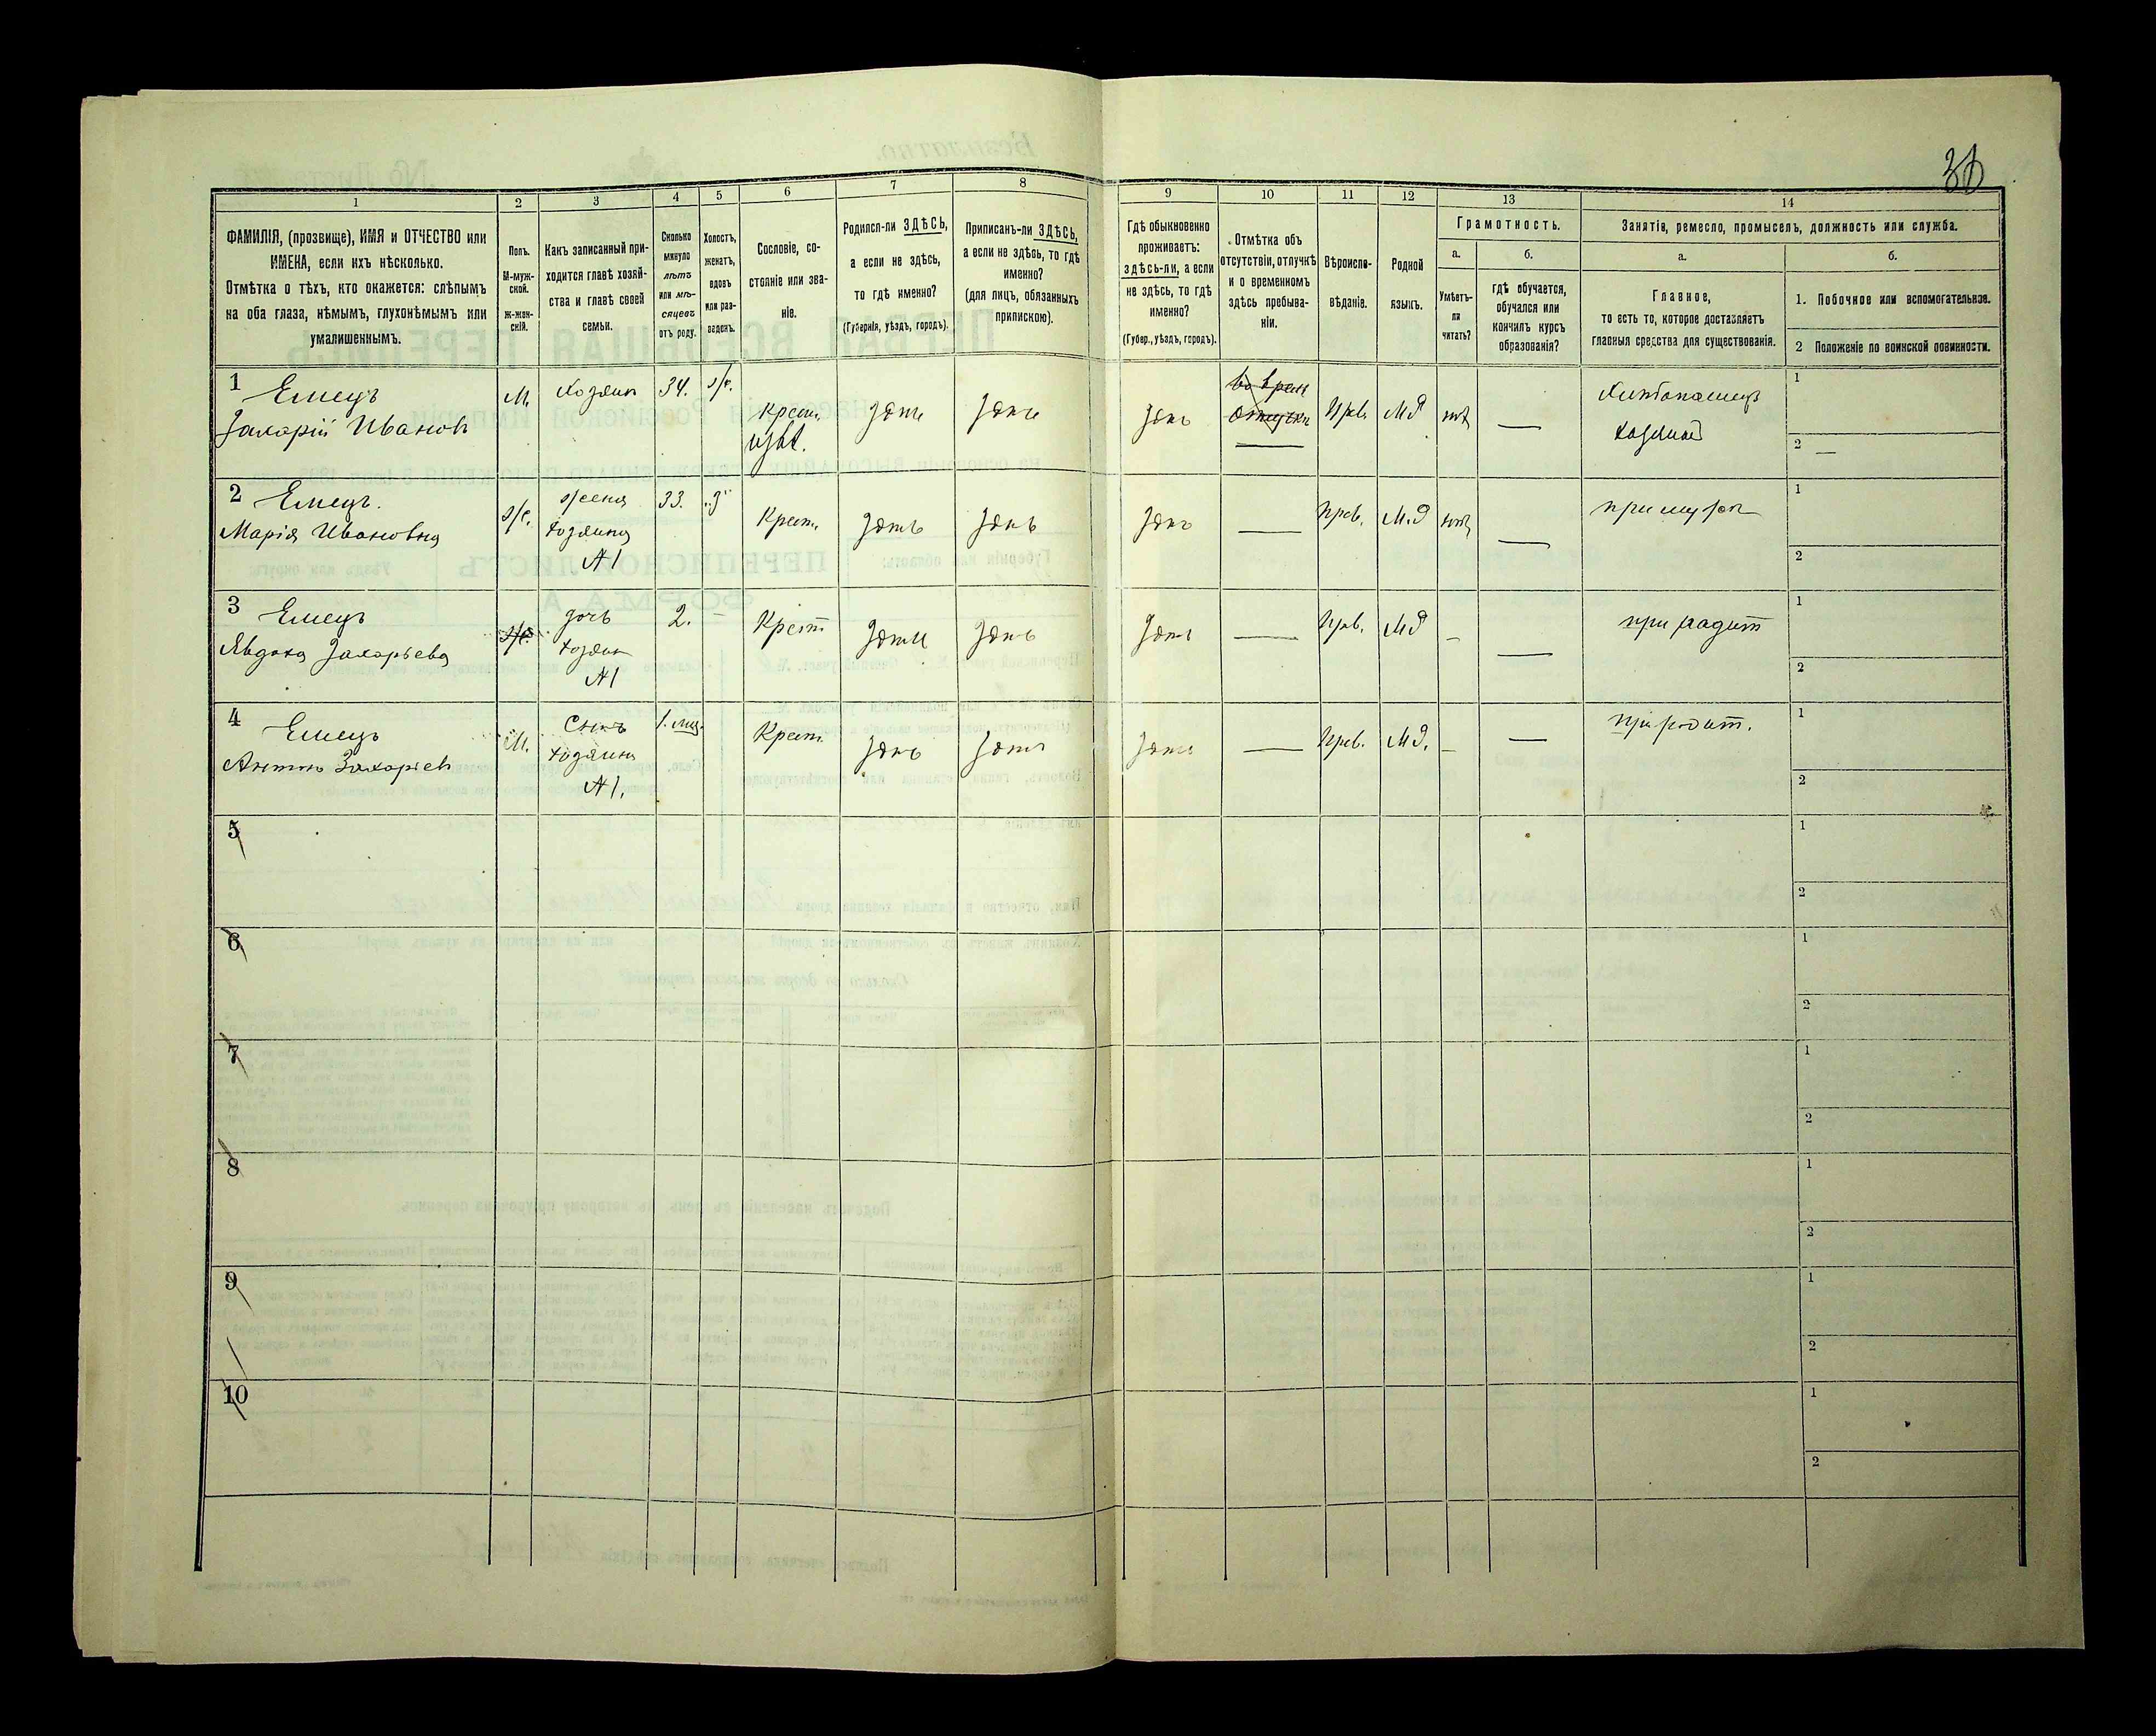 30
1 2 3 4 5 6 7 8 9 10 11 12 13 14
ФАМИЛІЯ, (прозвище), ИМЯ и ОТЧЕСТВО или
ИМЕНА, если ихъ нѣсколько.
Отмѣтка о тѣхъ, кто окажется: слѣпымъ
на оба глаза, нѣмымъ, глухонѣмымъ или
умалишеннымъ.
Полъ.
М-муж-
ской.
ж-жен-
скій.
Какъ записанный при-
ходится главѣ хозяй-
ства и главѣ своей
семьи.
Сколько
минуло
лѣтъ
или мѣ-
сяцевъ
отъ роду.
Холостъ,
женатъ,
вдовъ
или раз-
веденъ.
Сословіе, со-
стояніе или зва-
ніе.
Родился-ли ЗДѢСЬ,
а если не здѣсь,
то гдѣ именно?
(Губернія, уѣздъ, городъ).
Приписанъ-ли ЗДѢСЬ,
а если не здѣсь, то гдѣ
именно?
(для лицъ, обязанныхъ
припискою).
Гдѣ обыкновенно
проживаетъ:
здѣсь-ли, а если
не здѣсь, то гдѣ
именно?
(Губер., уѣздъ, городъ).
Отмѣтка объ
отсутствіи, отлучкѣ
и о временномъ
здѣсь пребыва-
ніи.
Вѣроиспо-
вѣданіе.
Родной
языкъ.
Грамотность.
а.
Умѣетъ-
ли
читать?
б.
гдѣ обучается,
обучался или
кончилъ курсъ
образованія?
Занятіе, ремесло, промыселъ, должность или служба.
а.
Главное,
то есть то, которое доставляетъ
главныя средства для существованія.
б.
1. Побочное или вспомогательное.
2 Положеніе по воинской повинности.
1 Емецъ
Захарій Ивановъ
М.
Хозяин
34.
ж.
Крест.
здѣсь
здѣсь
здѣсь
Прав.
М.
нѣт
—
1
2 —
2 Емецъ.
Марія Ивановна
ж.
жена
хозяина
№1
33.
"з"
Крест.
здѣсь
здѣсь
здѣсь
—
Прав.
М.
нѣт
—
при муже
1
2
3 Емецъ
Явдоха Захарьева
ж.
дочь
хозяин
№1
2.
—
Крест
здѣсь
здѣсь
здѣсь
—
Прав.
М
—
—
при радит
1
2
4 Емецъ
Антонъ Захаріев
М.
Сынъ
хозяина
№1.
1. мц.
Крест.
здѣсь
здѣсь
здѣсь
—
Прав.
М
—
—
при родит.
1
2
5
1
2
6
1
2
7
1
2
8
1
2
9
1
2
10
1
2